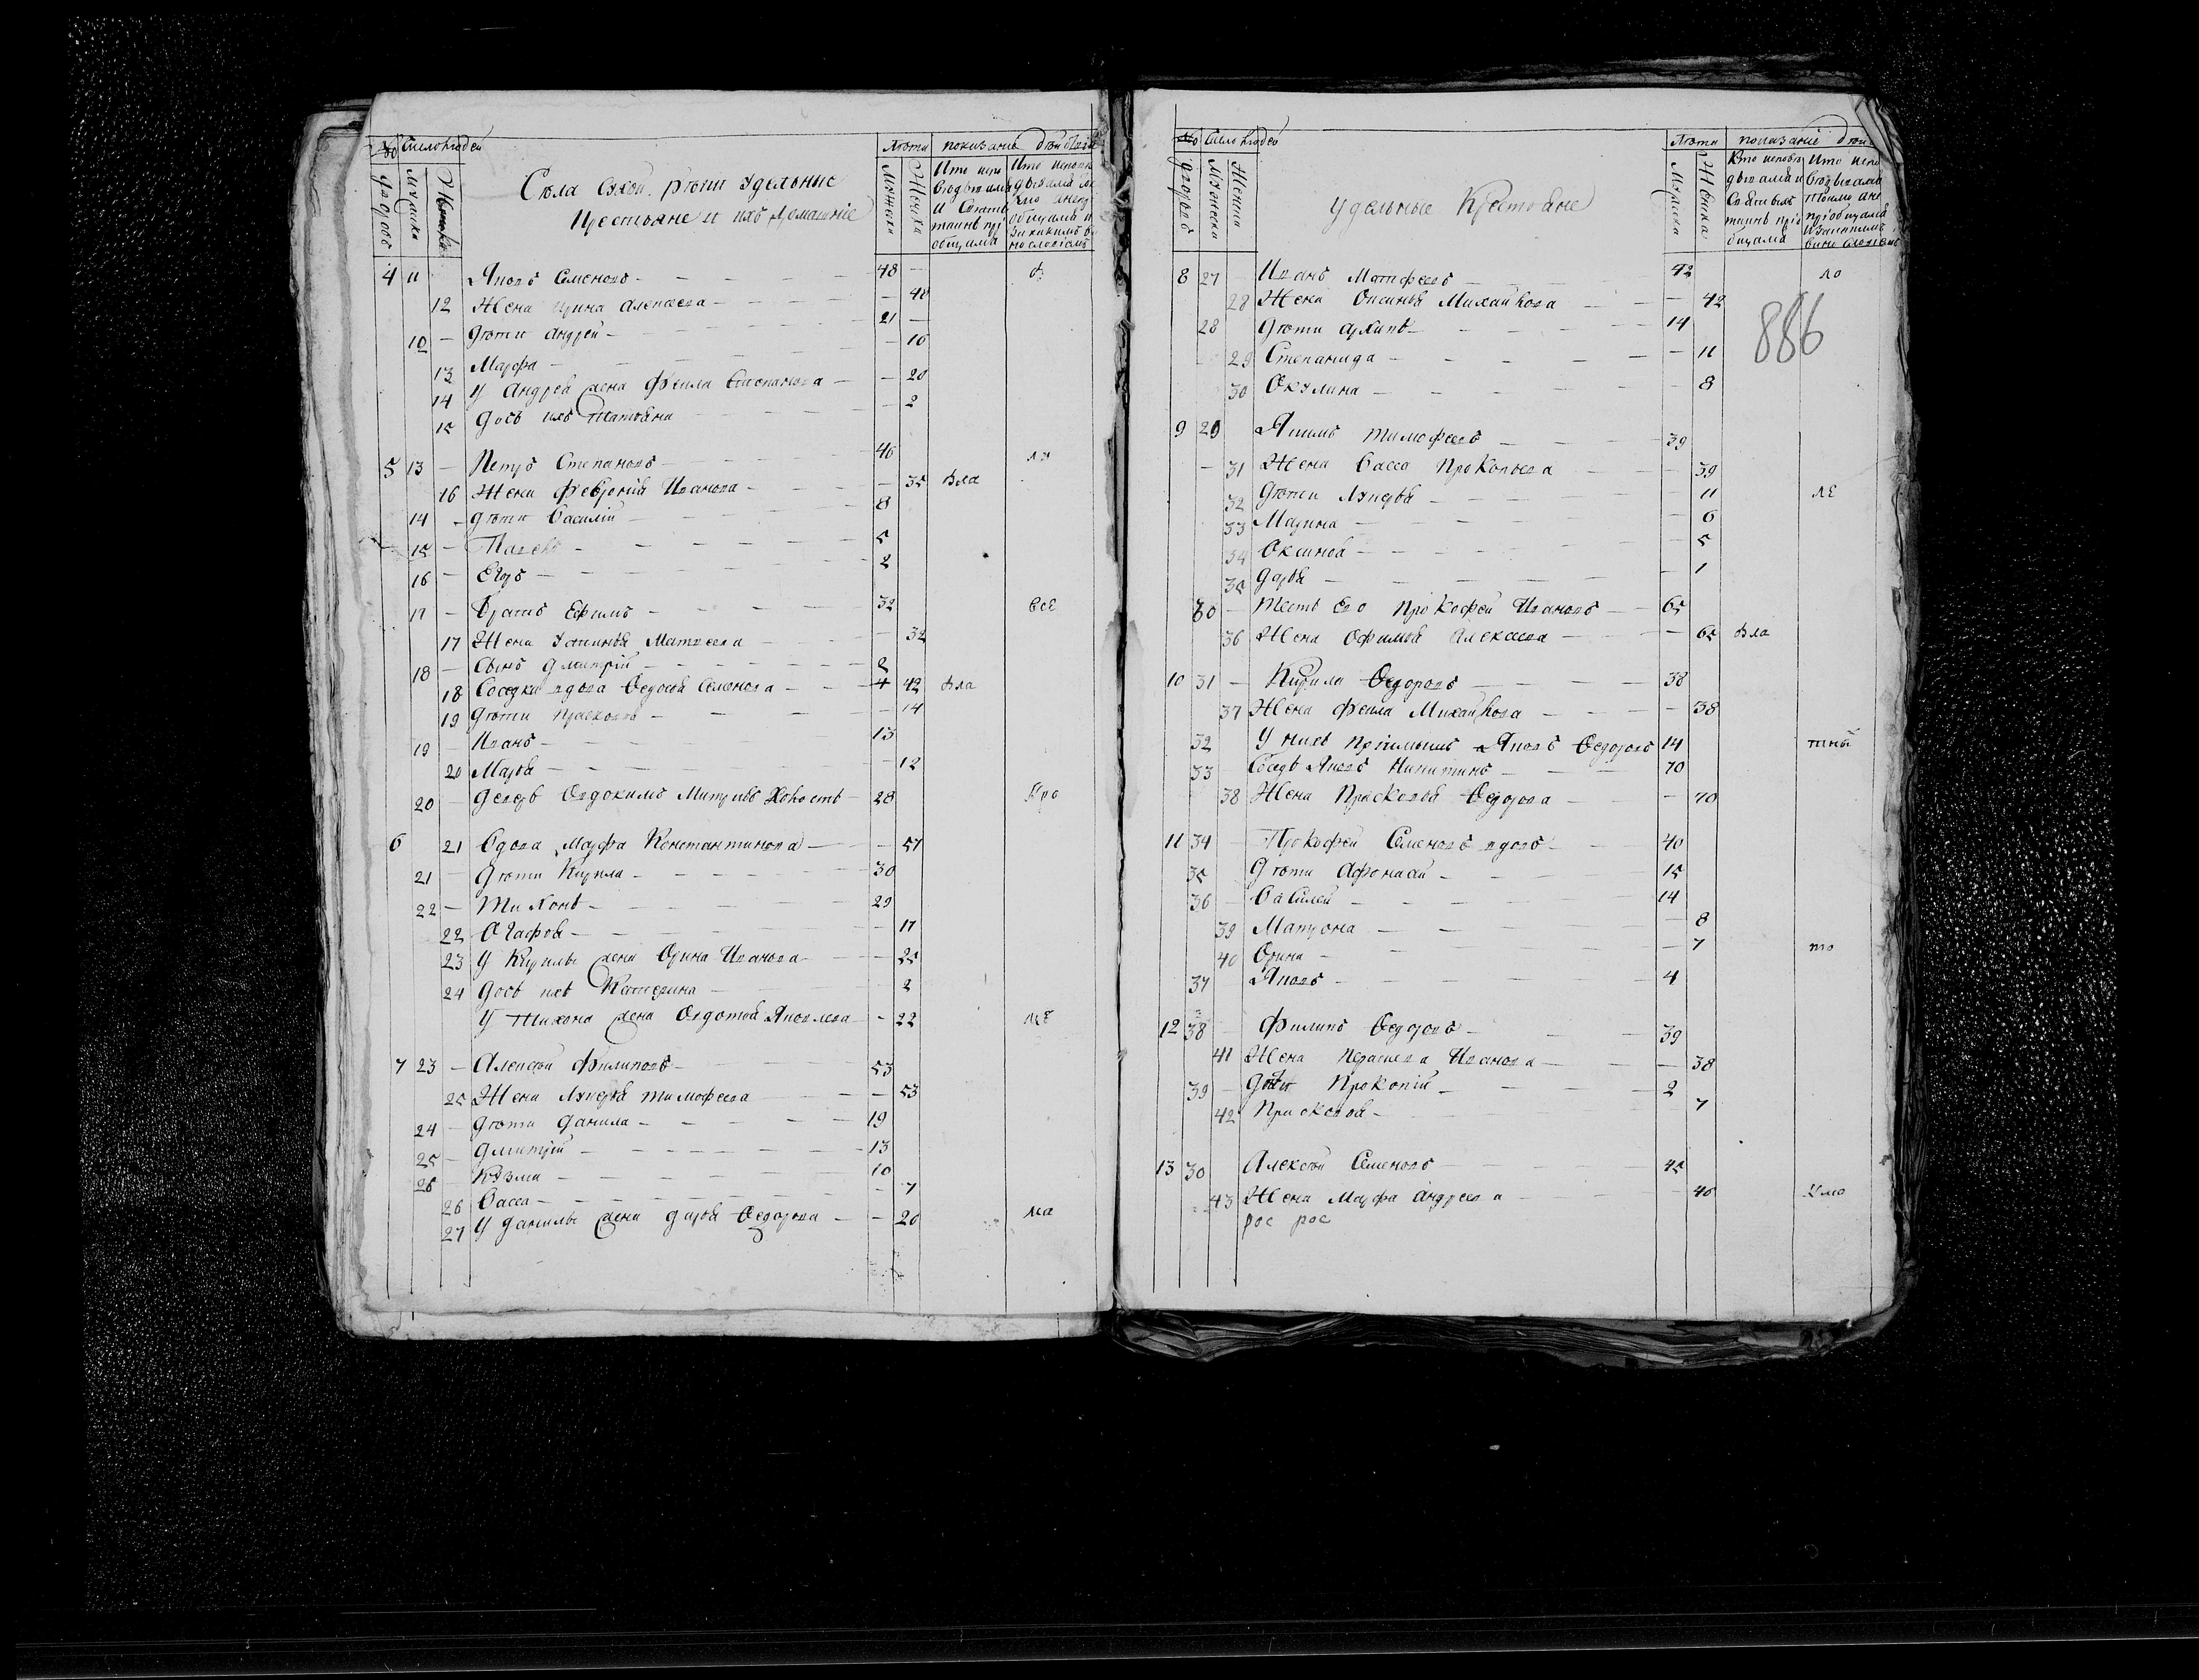 № Число людей Лѣта показаніе
дворовъ Мужеска Женска
Мужеска Женска
Села Сухой рѣчки Удельные
Крестьяне и ихъ домашніе
4 11 Яковъ Семеновъ — 48 —
12 Жена Ирина Алексеева — 40
Дѣти Андрей — 21 —
13 Марфа — 16
14 У Андрея жена Фекла Степанова — 20
15 Дочь ихъ Татьяна — 2
5 13 — Петръ Степановъ — 46
16 Жена Феврония Иванова — 35 Вла
14 — Дѣти Василій — 8
15 — — 5
16 — Егоръ — 2
17 — Братъ Ефимъ — 32 все
17 Жена Устинья Матвеева — 32
18 — Сынъ Дмитрій — 2
18 Соседка вдова Федосья Семенова — 42 Вла
19 Дѣти Прасковья — 14
19 — Иванъ — 13
20 Марья — 12
20 — Деверь Евдокимъ Холостъ — 28
6 21 Вдова Марфа Константинова — 57
21 — Дѣти Кирила — 30
22 — Тихонъ — 29
22 Огафья — 17
23 У Кирилы жена Орина Иванова — 25
24 Дочь ихъ Катерина — 2
У Тихона жена Овдотья Яковлева — 22
7 23 — Алексѣй Филиповъ — 53
25 Жена Лукерья Тимофеева — 53
24 — Дѣти Данила — 19
25 — Дмитрій — 13
26 — Козма — 10
26 Васса — 7
27 У Данилы жена Дарья Федорова — 20 ма
№ Число людей Лѣта показаніе
дворовъ Мужеска Женска
Мужеска Женска
Удельные Крестьяне
886
8 27 — Иванъ Матфеевъ — 42 ло
28 Жена Оксинья Михайлова — 42
28 Дѣти Архипъ — 14
29 Степанида — 11
30 Окулина — 8
9 29 Якимъ Тимофеевъ — 39
31 Жена Васса Прокопьева — 39
32 Дѣти Лукерья — 11
33 Марина — 6
34 Оксинья — 5
35 Дарья — 1
30 — Тесть его Прокофей Ивановъ — 65
36 Жена Офимья Алексеева — 65 Вла
10 31 — Кирила Федоровъ — 38
37 Жена Фекла Михайлова — 38
32 У нихъ пріимышъ Яковъ Федоровъ 14
33 Соседъ Яковъ Никитинъ — 70
38 Жена Прасковья Федорова — 70
11 34 — Прокофей Семеновъ вдовъ — 40
35 Дѣти Афонасей — 15
36 — Василей — 14
39 Матрона — 8
40 Орина — 7 то
37 Яковъ — 4
12 38 — Филипъ Федоровъ — 39
41 Жена Иванова — 38
39 — Дѣти Прокопій — 2
42 Прасковья — 7
13 30 Алексѣй Семеновъ — 45
43 Жена Марфа Андреева — 40
рос рос